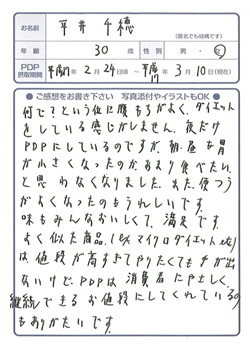 お名前 平井 千穂
(匿名でも結構です)
年齢 30歳 性別 男・女
PDP摂取期間 平成17年2月24日頃 ～ 平成17年3月10日(現在)
●ご感想をお書き下さい 写真添付やイラストもOK●
何で?という位に腹もちがよく、ダイエット
をしている感じがしません。夜だけ
PDPにしているのですが、朝・昼も胃
が小さくなったのか、あまり食べたい
と思わなくなりました。また、便つう
がよくなったのもうれしいです。
味もみんなおいしくて、満足です。
よく似た商品(ex.マイクロダイエットetc)
は値段が高すぎてやりたくても手が出
ないけど、PDPは消費者にやさしく、
継続できるお値段にしてくれているの
もありがたいです。